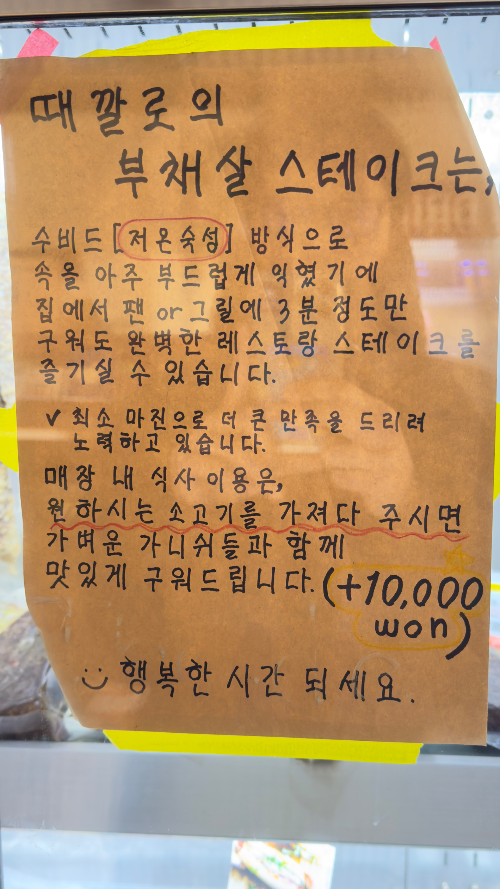 때깔로의
부채살 스테이크는,
수비드 [저온숙성] 방식으로
속을 아주 부드럽게 익혔기에
집에서 팬 or 그릴에 3분 정도만
구워도 완벽한 레스토랑 스테이크를
즐기실 수 있습니다.
✓ 최소 마진으로 더 큰 만족을 드리려
노력하고 있습니다.
매장 내 식사 이용은,
원하시는 소고기를 가져다 주시면
가벼운 가니쉬들과 함께
맛있게 구워드립니다. (+10,000
won)
행복한 시간 되세요.